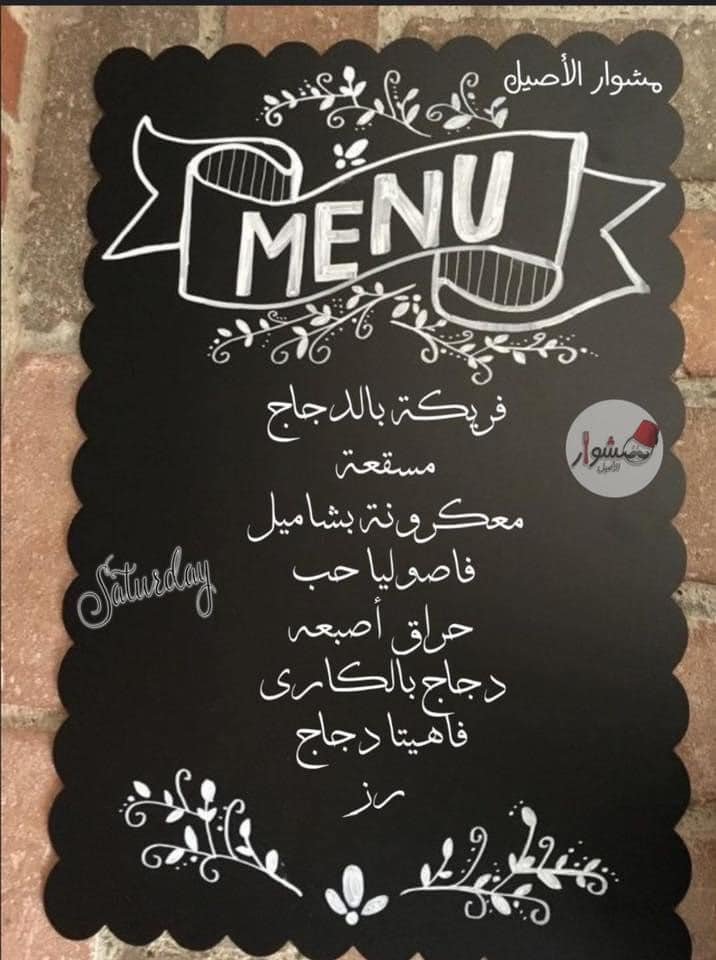 مشوار الأصيل
MENU
فريكة بالدجاج
مشوار
الأصيل
مسقعة
معكرونة بشاميل
فاصوليا حب
Saturday
حراق أصبعه
دجاج بالكارى
فاهيتا دجاج
رز